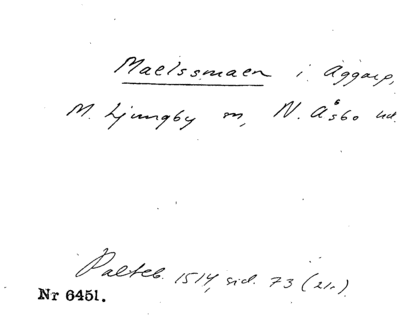 Maelssmaen i Aggarp,
M. Ljungby sn, N. Åsbo hd.
Palteb. 1514, sid. 73 (21r).
Nr 6451.